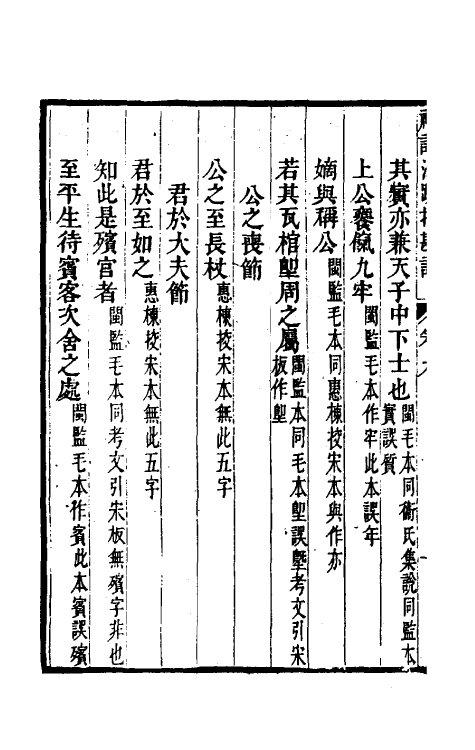 禮記注疏校勘記
其實亦兼天子中下士也閩毛本同衛氏集說同監本實誤質
上公饔餼九牢閩監毛本作牢此本誤年
嫡與稱公閩監毛本同惠棟挍宋本與作亦
若其瓦棺堲周之屬閩監本同毛本堲誤塈考文引宋板作堲
公之喪節
公之至長杖惠棟挍宋本無此五字
君於大夫節
君於至如之惠棟挍宋本無此五字
知此是殯宮者閩監毛本同考文引宋板無殯字非也
至平生待賓客次舍之處閩監毛本作賓此本賓誤殯